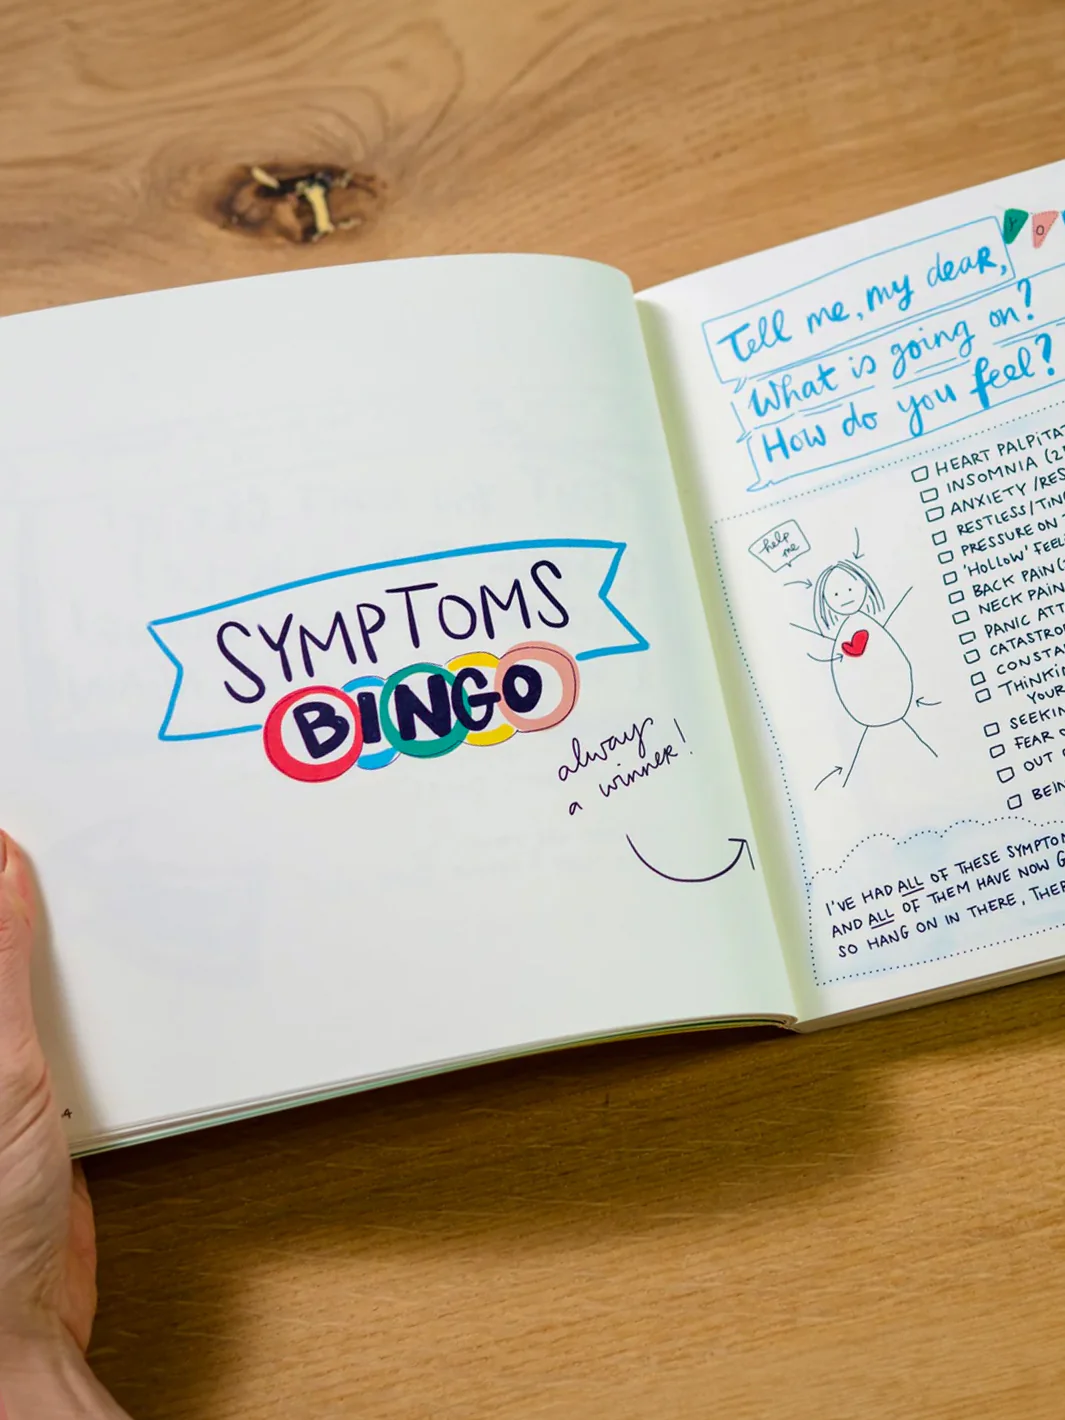 SYMPTOMS
BINGO
always
a winner!
4
Y O
Tell me, my dear,
What is going on?
How do you feel?
help
me
HEART PALPITAT
INSOMNIA (2
ANXIETY /RES
RESTLESS/TIN
PRESSURE ON
'HOLLOW' FEEL
BACK PAIN (
NECK PAIN
PANIC ATT
CATASTRO
CONSTA
THINKIN
YOUR
SEEKIN
FEAR
OUT
BEIN
I'VE HAD ALL OF THESE SYMPTO
AND ALL OF THEM HAVE NOW G
SO HANG ON IN THERE, THER